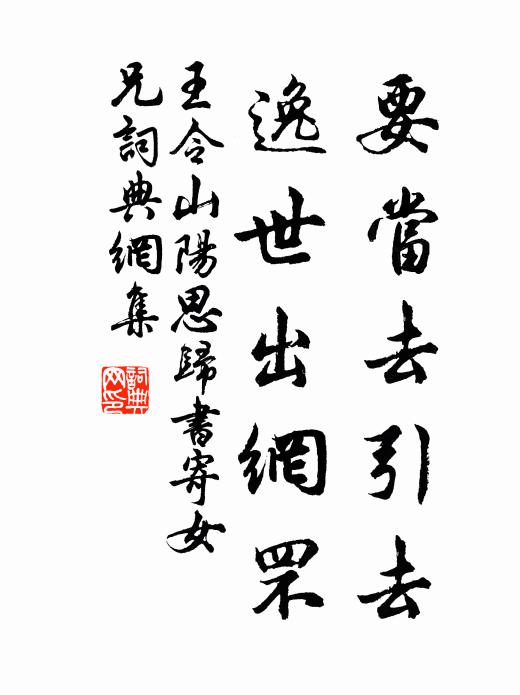 要當去引去
逸世出網罘
王令山陽思歸書寄女
兄詞典網集
詞典
网印